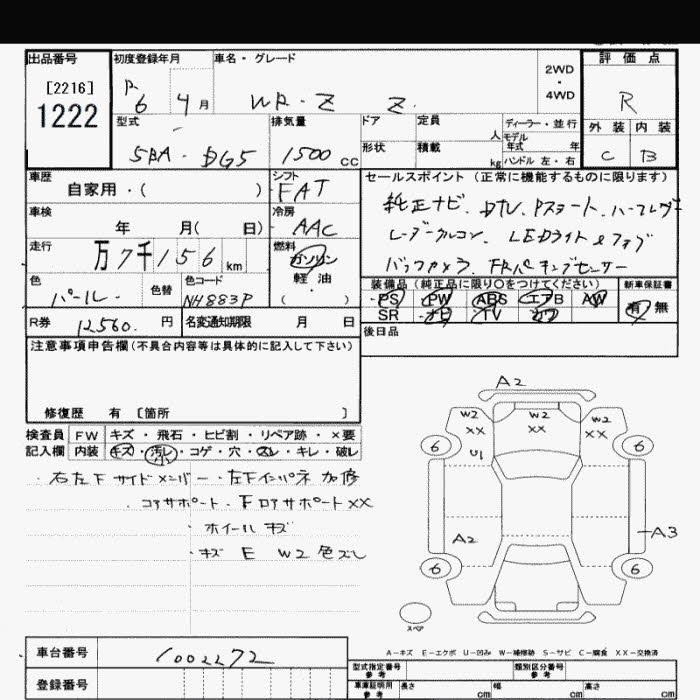 出品番号 初度登録年月 車名・グレード 評価点
[2216]
1222
R 6 4月 WR-Z Z 2WD・4WD R
型式 排気量 ドア 定員 人 ディーラー・並行 外装 内装
モデル年式 年
5BA-DG5 1500cc 形状 積載 kg ハンドル 左・右 C B
車歴 シフト セールスポイント(正常に機能するものに限ります)
自家用・( ) FAT
純正ナビ、DTV、Pスタート、ハーフレザー
車検 冷房
年 月( 日) AAC
レーダークルコン、LEDライト&フォグ
走行 燃料
万7千156km ガソリン
軽油
( )
バックカメラ、FRパーキングセンサー
色 色替 色コード
パール NH883P
装備品(純正品に限り○をつけてください) 新車保証書
PS PW ABS エアB AW 有・無
SR ナビ TV カワ
R券 12560円 名変通知期限 月 日
後日品
注意事項申告欄(不具合内容等は具体的に記入して下さい)
修復歴 有 〔箇所 〕
検査員 FW キズ・飛石・ヒビ割・リペア跡・×要
記入欄 内装 キズ・汚レ・コゲ・穴・スレ・キレ・破レ
小
・右左下サイドメンバー・左下インパネ 加修
コアサポート・下ロアサポートXX
・ホイールキズ
・キズ E W2 色ズレ
A2
W2 XX W2 XX W2 XX
6 U1 6
A2 A3
6 6
スペア
A-キズ E-エクボ U-凹み W-補修跡 S-サビ C-腐食 XX-交換済
車台番号 1002272
型式指定番号 参考 類別区分番号 参考
登録番号 車庫証明用 参考 長さ cm 幅 cm 高さ cm